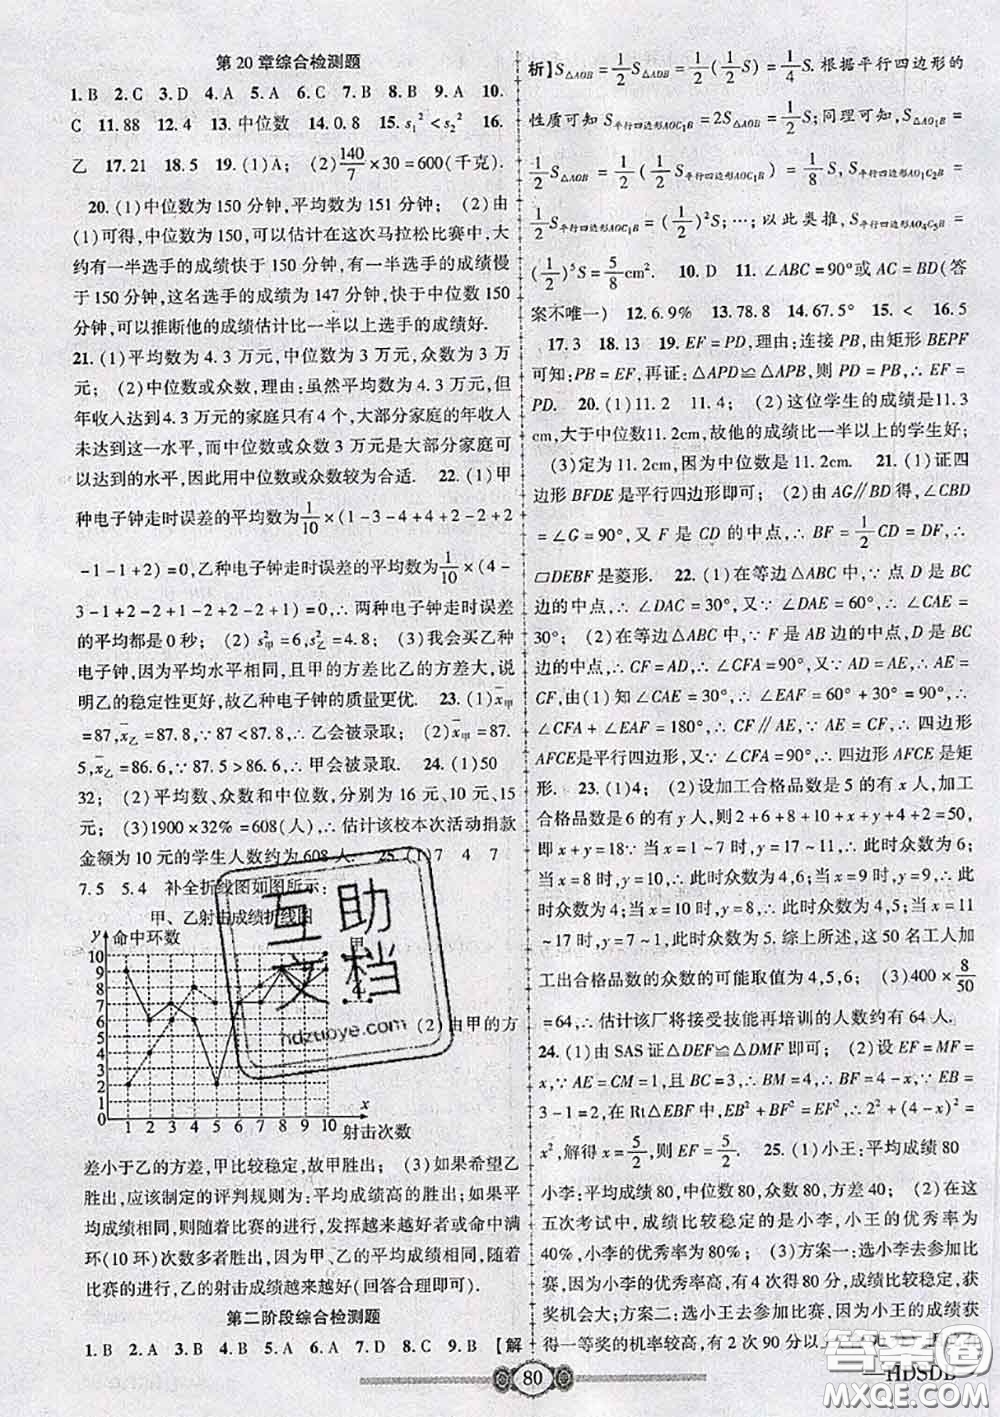 第 20 章综合检测题
1. B 2. C 3. D 4. A 5. A 6. C 7. B 8. B 9. A 10.
C 11. 88 12. 4 13. 中位数 14. 0. 8 15. s₁² < s₂² 16.
乙 17. 21 18. 5 19. (1)A; (2)140/7 ×30=600(千克).
20. (1)中位数为 150 分钟,平均数为 151 分钟; (2)由
(1)可得,中位数为 150,可以估计在这次马拉松比赛中,大
约有一半选手的成绩快于 150 分钟,有一半选手的成绩慢
于 150 分钟,这名选手的成绩为 147 分钟,快于中位数 150
分钟,可以推断他的成绩估计比一半以上选手的成绩好.
21. (1)平均数为 4. 3 万元,中位数为 3 万元,众数为 3 万
元; (2)中位数或众数,理由:虽然平均数为 4. 3 万元,但
年收入达到 4. 3 万元的家庭只有 4 个,大部分家庭的年收入
未达到这一水平,而中位数或众数 3 万元是大部分家庭可
以达到的水平,因此用中位数或众数较为合适. 22. (1)甲
种电子钟走时误差的平均数为1/10×(1-3-4+4+2-2+2
-1-1+2)=0,乙种电子钟走时误差的平均数为1/10×(4-
3-1+2+2+1-2-2+2-2+1)=0,∴两种电子钟走时误差
的平均都是 0 秒; (2) s²甲=6,s²乙=4. 8; (3)我会买乙种
电子钟,因为平均水平相同,且甲的方差比乙的方差大,说
明乙的稳定性更好,故乙种电子钟的质量更优. 23. (1)x̄甲
=87,x̄乙=87. 8,∵87<87. 8,∴乙会被录取; (2)x̄甲=87.
5,x̄乙=86. 6,∵87. 5>86. 6,∴甲会被录取. 24. (1)50
32; (2)平均数、众数和中位数,分别为 16 元、10 元、15
元; (3)1900×32%=608(人),∴估计该校本次活动捐款
金额为 10 元的学生人数约为 608 人. 25. (1)7 4 7
7. 5 5. 4 补全折线图如图所示:
甲、乙射击成绩折线图
y 命中环数
甲
10
9
8
7
6
5
4
3
2
1
0
1 2 3 4 5 6 7 8 9 10
x
射击次数
(2)由甲的方
差小于乙的方差,甲比较稳定,故甲胜出; (3)如果希望乙
胜出,应该制定的评判规则为:平均成绩高的胜出;如果平
均成绩相同,则随着比赛的进行,发挥越来越好者或命中满
环(10 环)次数多者胜出,因为甲、乙的平均成绩相同,随着
比赛的进行,乙的射击成绩越来越好(回答合理即可).
第二阶段综合检测题
1. B 2. A 3. B 4. B 5. A 6. A 7. D 8. C 9. B [解
析]S△AOB=1/2 S△ADB=1/2(1/2 S)=1/4 S. 根据平行四边形的
性质可知 S平行四边形AOC₁B=2S△AOB=1/2 S;同理可知,S△AO₁B=
1/2 S△AOB=1/2(1/2 S平行四边形AOC₁B)=1/8 S,S平行四边形AO₁C₂B=
1/2 S平行四边形AOC₁B=(1/2)²S;…;以此类推,S平行四边形AO₄C₅B=
(1/2)⁵S=5/8 cm². 10. D 11. ∠ABC=90°或 AC=BD(答
案不唯一) 12. 6. 9% 13. 78. 8 14. 67. 5° 15. < 16. 5
17. 3 18. 13 19. EF=PD,理由:连接 PB,由矩形 BEPF
可知:PB=EF,再证:△APD≌△APB,所以 PD=PB,∴EF=
PD. 20. (1)11. 2 11. 4; (2)这位学生的成绩是11. 3
cm,大于中位数11. 2cm,故他的成绩比一半以上的学生好;
(3)定为 11. 2cm,因为中位数是 11. 2cm. 21. (1)证四
边形 BFDE 是平行四边形即可; (2)由 AG∥BD 得,∠CBD
=∠G=90°,又 F 是 CD 的中点,∴BF=1/2 CD=DF,∴
▱DEBF 是菱形. 22. (1)在等边△ABC 中,∵D 是 BC
边的中点,∴∠DAC=30°,又∵∠DAE=60°,∴∠CAE=
30°; (2)在等边△ABC 中,∵F 是 AB 边的中点,D 是 BC
边的中点,∴CF=AD,∠CFA=90°,又∵AD=AE,∴AE=
CF,由(1)知∠CAE=30°,∴∠EAF=60°+30°=90°,∴
∠CFA+∠EAF=180°,∴CF∥AE,∵CF=AE,∴四边形
AFCE是平行四边形,又∵∠CFA=90°,∴四边形 AFCE 是矩
形. 23. (1)4; (2)设加工合格品数是 5 的有 x 人,加工
合格品数是 6 的有 y 人,则 2+6+8+10+x+y+4+2=50,
即 x+y=18∵当 x=1~7 时,y=17~11,此时众数为 6;当
x=8 时,y=10,此时众数为 4,6;当 x=9 时,y=9,此时众数
为 4;当 x=10 时,y=8,此时众数为 4,5;当 x=11
~17 时,y=7~1,此时众数为 5. 综上所述,这 50 名工人加
工出合格品数的众数的可能取值为 4,5,6; (3)400×8/50
=64,∴估计该厂将接受技能再培训的人数约有 64 人.
24. (1)由 SAS 证△DEF≌△DMF 即可; (2)设 EF=MF=
x,∵AE=CM=1,且 BC=3,∴BM=4,∴BF=4-x,∵EB=
3-1=2 在 Rt△EBF 中,EB²+BF²=EF²,∴2²+(4-x)²=
x²,解得 x=5/2,则 EF=5/2. 25. (1)小王:平均成绩 80
小李:平均成绩 80,中位数 80,众数 80,方差 40; (2)在这
五次考试中,成绩比较稳定的是小李,小王的优秀率为
40%,小李的优秀率为 80%; (3)方案一:选小李参加比
赛,因为小李的优秀率高,有 4 次得 80 分,成绩比较稳定,获
奖机会大;方案二:选小王参加比赛,因为小王的成绩获
得一等奖的机率较高,有 2 次 90 分以上
80
—HDSDB—
互助文档
hdzuoye.com
答案圈
MXQE.COM